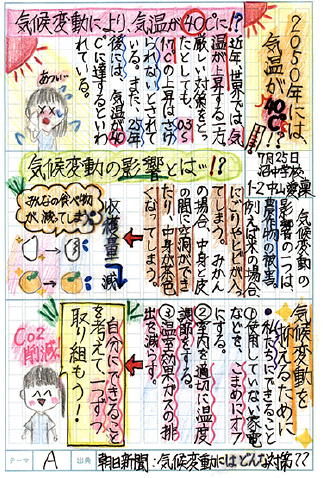 気候変動により、気温が40℃に!?
2050年には、
気温が
40℃!?
近年、世界では、気
温が上昇する一方。
厳しい対策をとっ
たとしても、0.3~
1.7℃の上昇はさけ
られないとされて
いる。また、25年
後には、気温が40
℃に達するといわ
れている。
あつい…
気候変動の影響とは…!?
7月25日
沼中学校
1-2 中山愛菜
気候変動の
影響の一つは、
農作物の被害。
例えば米の場合、
にごりやヒビが入っ
てしまう。みかん
の場合、中身と皮
の間に空洞ができ
たり、中身が茶色
くなってしまう。
収穫量減
みんなの食べ物
が、減ってしまう
気候変動を
抑えるために
・私たちにできること
①使用していない家電
などを、こまめにオフ
にする。
②室内を適切に温度
調節をする。
③温室効果ガスの排
出を減らす。
自分にできること
を考えて、一つずつ
取り組もう!
CO2
削減
テーマ A 出典 朝日新聞:気候変動にはどんな対策??